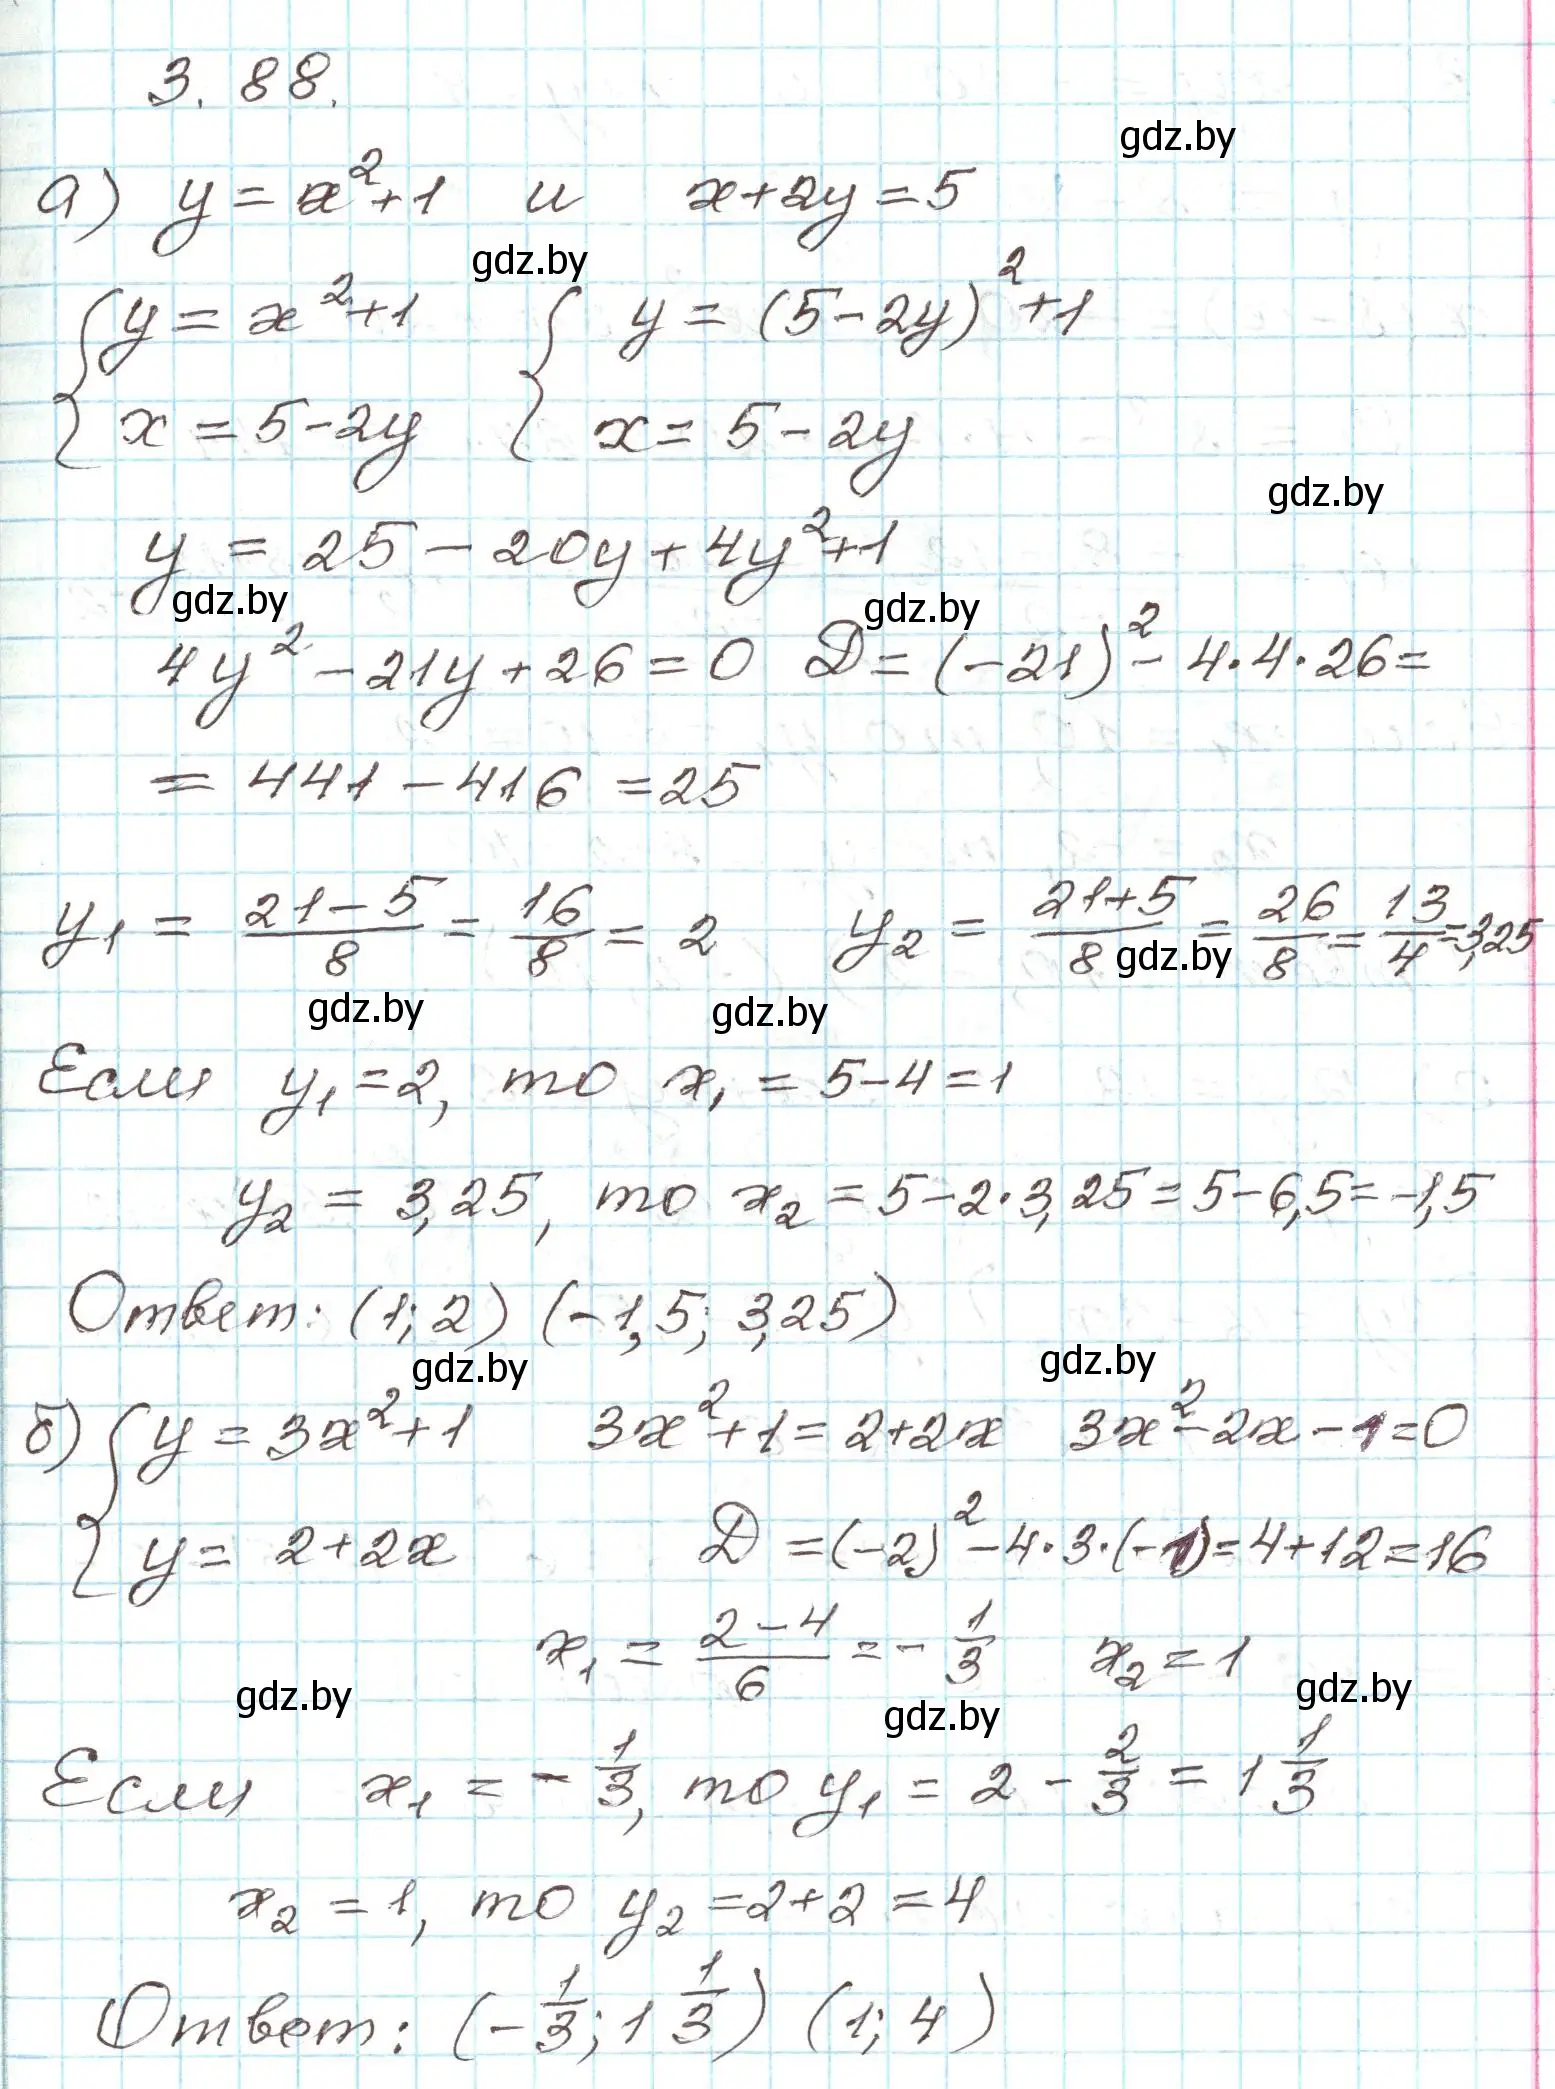 3.88.
gdz.by
а) y = x²+1 и x+2y=5
gdz.by
{ y = x²+1 { y = (5-2y)²+1
x = 5-2y x = 5-2y
gdz.by
y = 25-20y+4y²+1
gdz.by gdz.by
4y²-21y+26=0 D=(-21)²-4·4·26=
= 441-416 =25
y₁ = (21-5)/8 = 16/8 = 2 y₂ = (21+5)/8 = 26/8 = 13/4 =3,25
gdz.by
gdz.by gdz.by
Если y₁=2, то x₁=5-4=1
y₂ = 3,25, то x₂=5-2·3,25=5-6,5=-1,5
Ответ: (1;2) (-1,5; 3,25)
gdz.by gdz.by
б) { y=3x²+1 3x²+1=2+2x 3x²-2x-1=0
y= 2+2x D=(-2)²-4·3·(-1)=4+12=16
x₁ = (2-4)/6 = -1/3 x₂=1
gdz.by gdz.by gdz.by
Если x₁=-1/3, то y₁=2-2/3=1 1/3
x₂=1, то y₂=2+2=4
Ответ: (-1/3; 1 1/3) (1; 4)